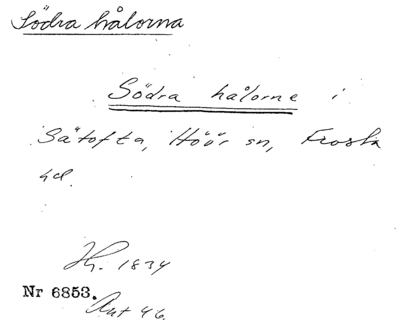 Södra hålorna
Södra hålorne i
Sätofta, Höör sn, Frosta
hd.
H. 1834
Nr 6853.
Ant 46.